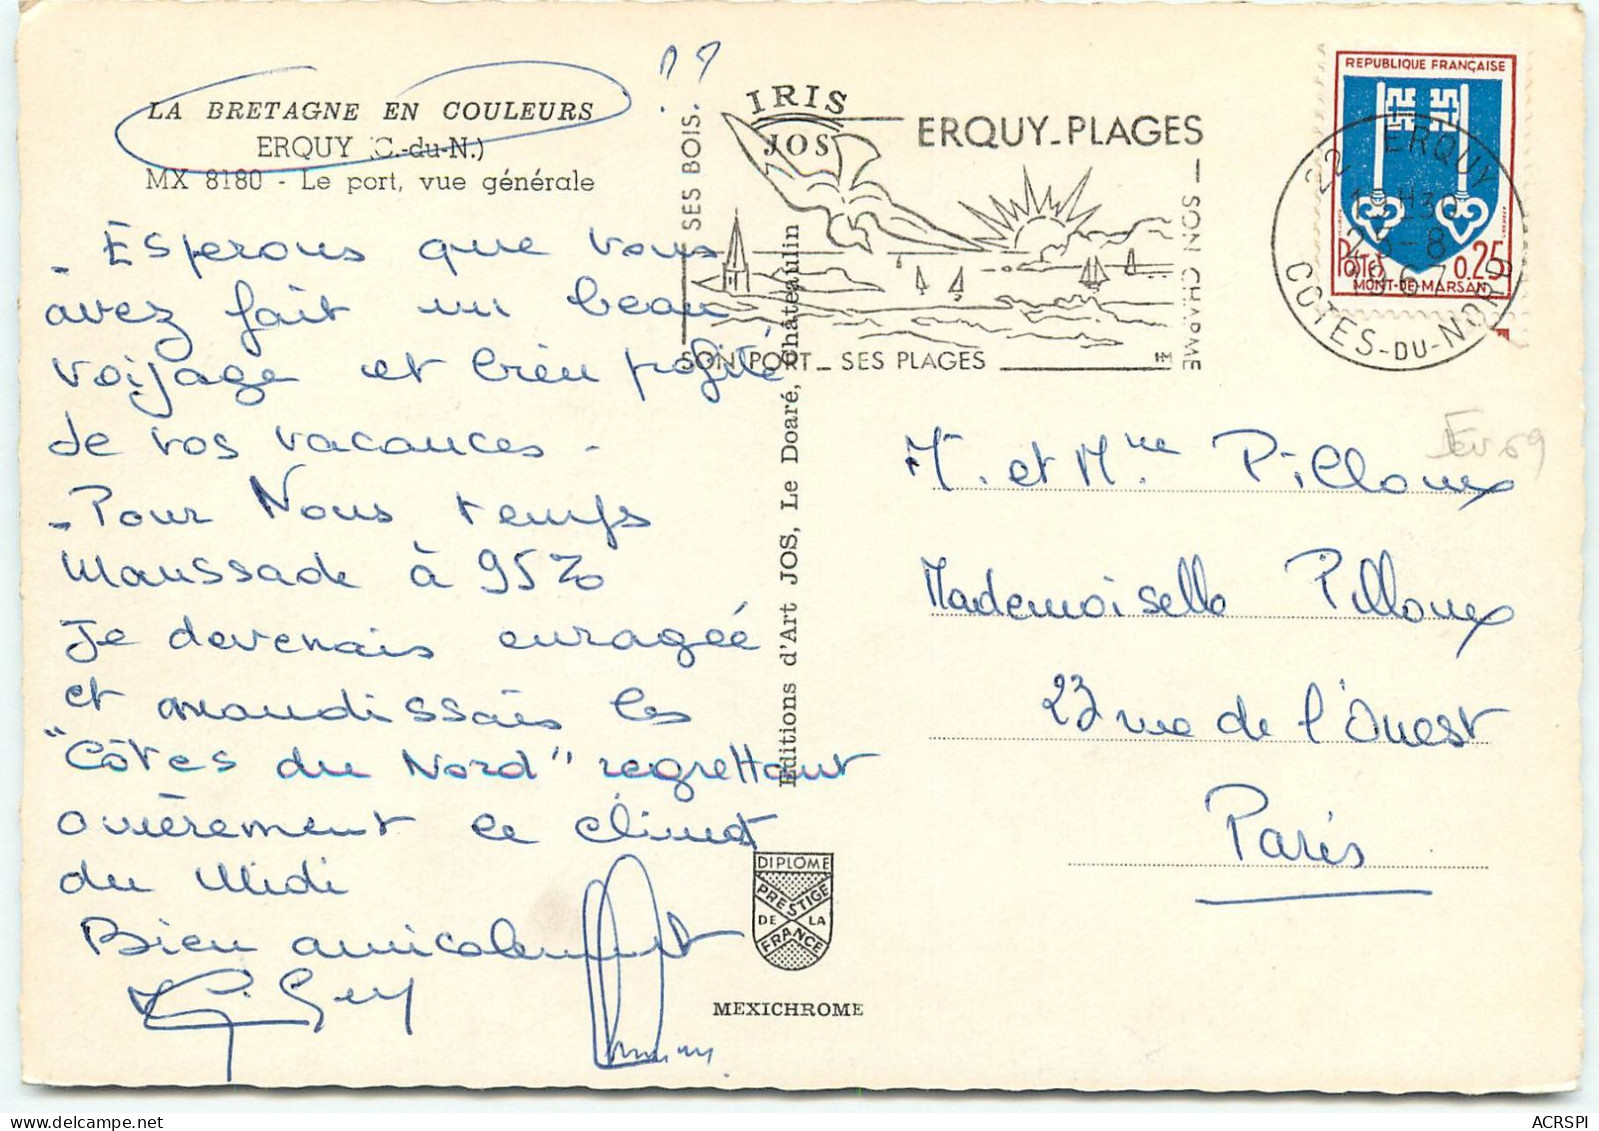 ??
LA BRETAGNE EN COULEURS
ERQUY (C.-du-N.)
MX 8180 - Le port, vue générale
- Esperons que vous
avez fait un beau
voijage et bien profité
de vos vacances -
- Pour Nous temps
Maussade à 95%
Je devenais enragée
et maudissais les
"Côtes du Nord" regrettant
amèrement ce climat
du Midi
Bien amicalement
IRIS
JOS
ERQUY_PLAGES
SES BOIS.
SON PORT_ SES PLAGES
SON CHARME
Editions d'Art JOS, Le Doaré, Châteaulin
REPUBLIQUE FRANÇAISE
POSTES 0.25
MONT-DE-MARSAN
22 ERQUY
19H30
25-8
1967
COTES-DU-NORD
M. et Mme Pilloux
Mademoiselle Pilloux
23 rue de l'Ouest
Paris
DIPLOME
PRESTIGE
DE LA
FRANCE
MEXICHROME
ACRSPI